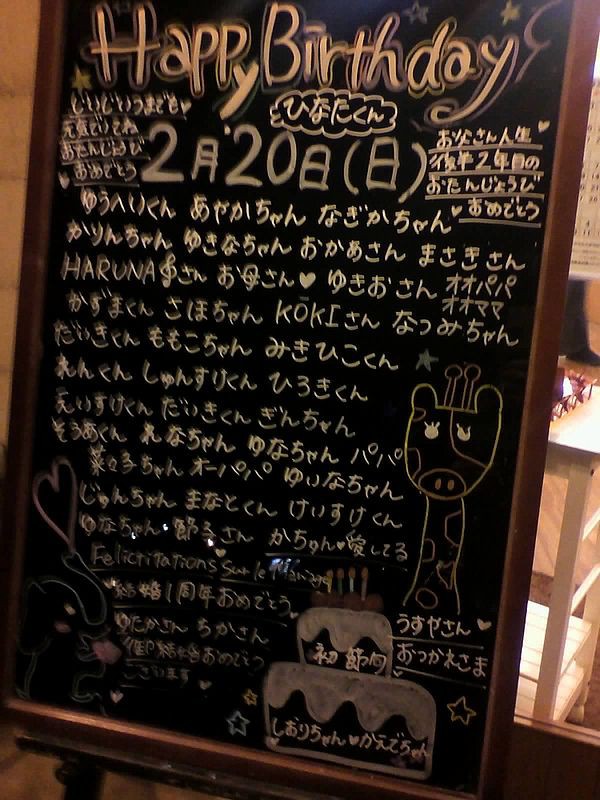 Happy Birthday
ひなたくん
じぃじいつまでも
元気でいてね
おたんじょうび
おめでとう
2月20日(日)
お父さん人生
後半2年目の
おたんじょうび
おめでとう
ゆうへいくん あやかちゃん なぎかちゃん
かりんちゃん ゆきなちゃん おかあさん まさきさん
HARUNAさん お母さん ゆきおさん オオパパ
オオママ
かずまくん さほちゃん KŌKIさん なつみちゃん
だいきくん ももこちゃん みきひこくん
れんくん しゅんすけくん ひろきくん
えいすけくん だいきくん ぎんちゃん
そうあくん れなちゃん ゆなちゃん パパ
菜々子ちゃん オーパパ ゆいなちゃん
じゅんちゃん まなとくん けいすけくん
ゆなちゃん 節子さん かちゅん 愛してる
Felicitations Sur le
結婚1周年おめでとう
ゆたかさん ちかさん
御結婚おめでとう
ございます
うすやさん
おつかれさま
初節句
しおりちゃん かえでちゃん